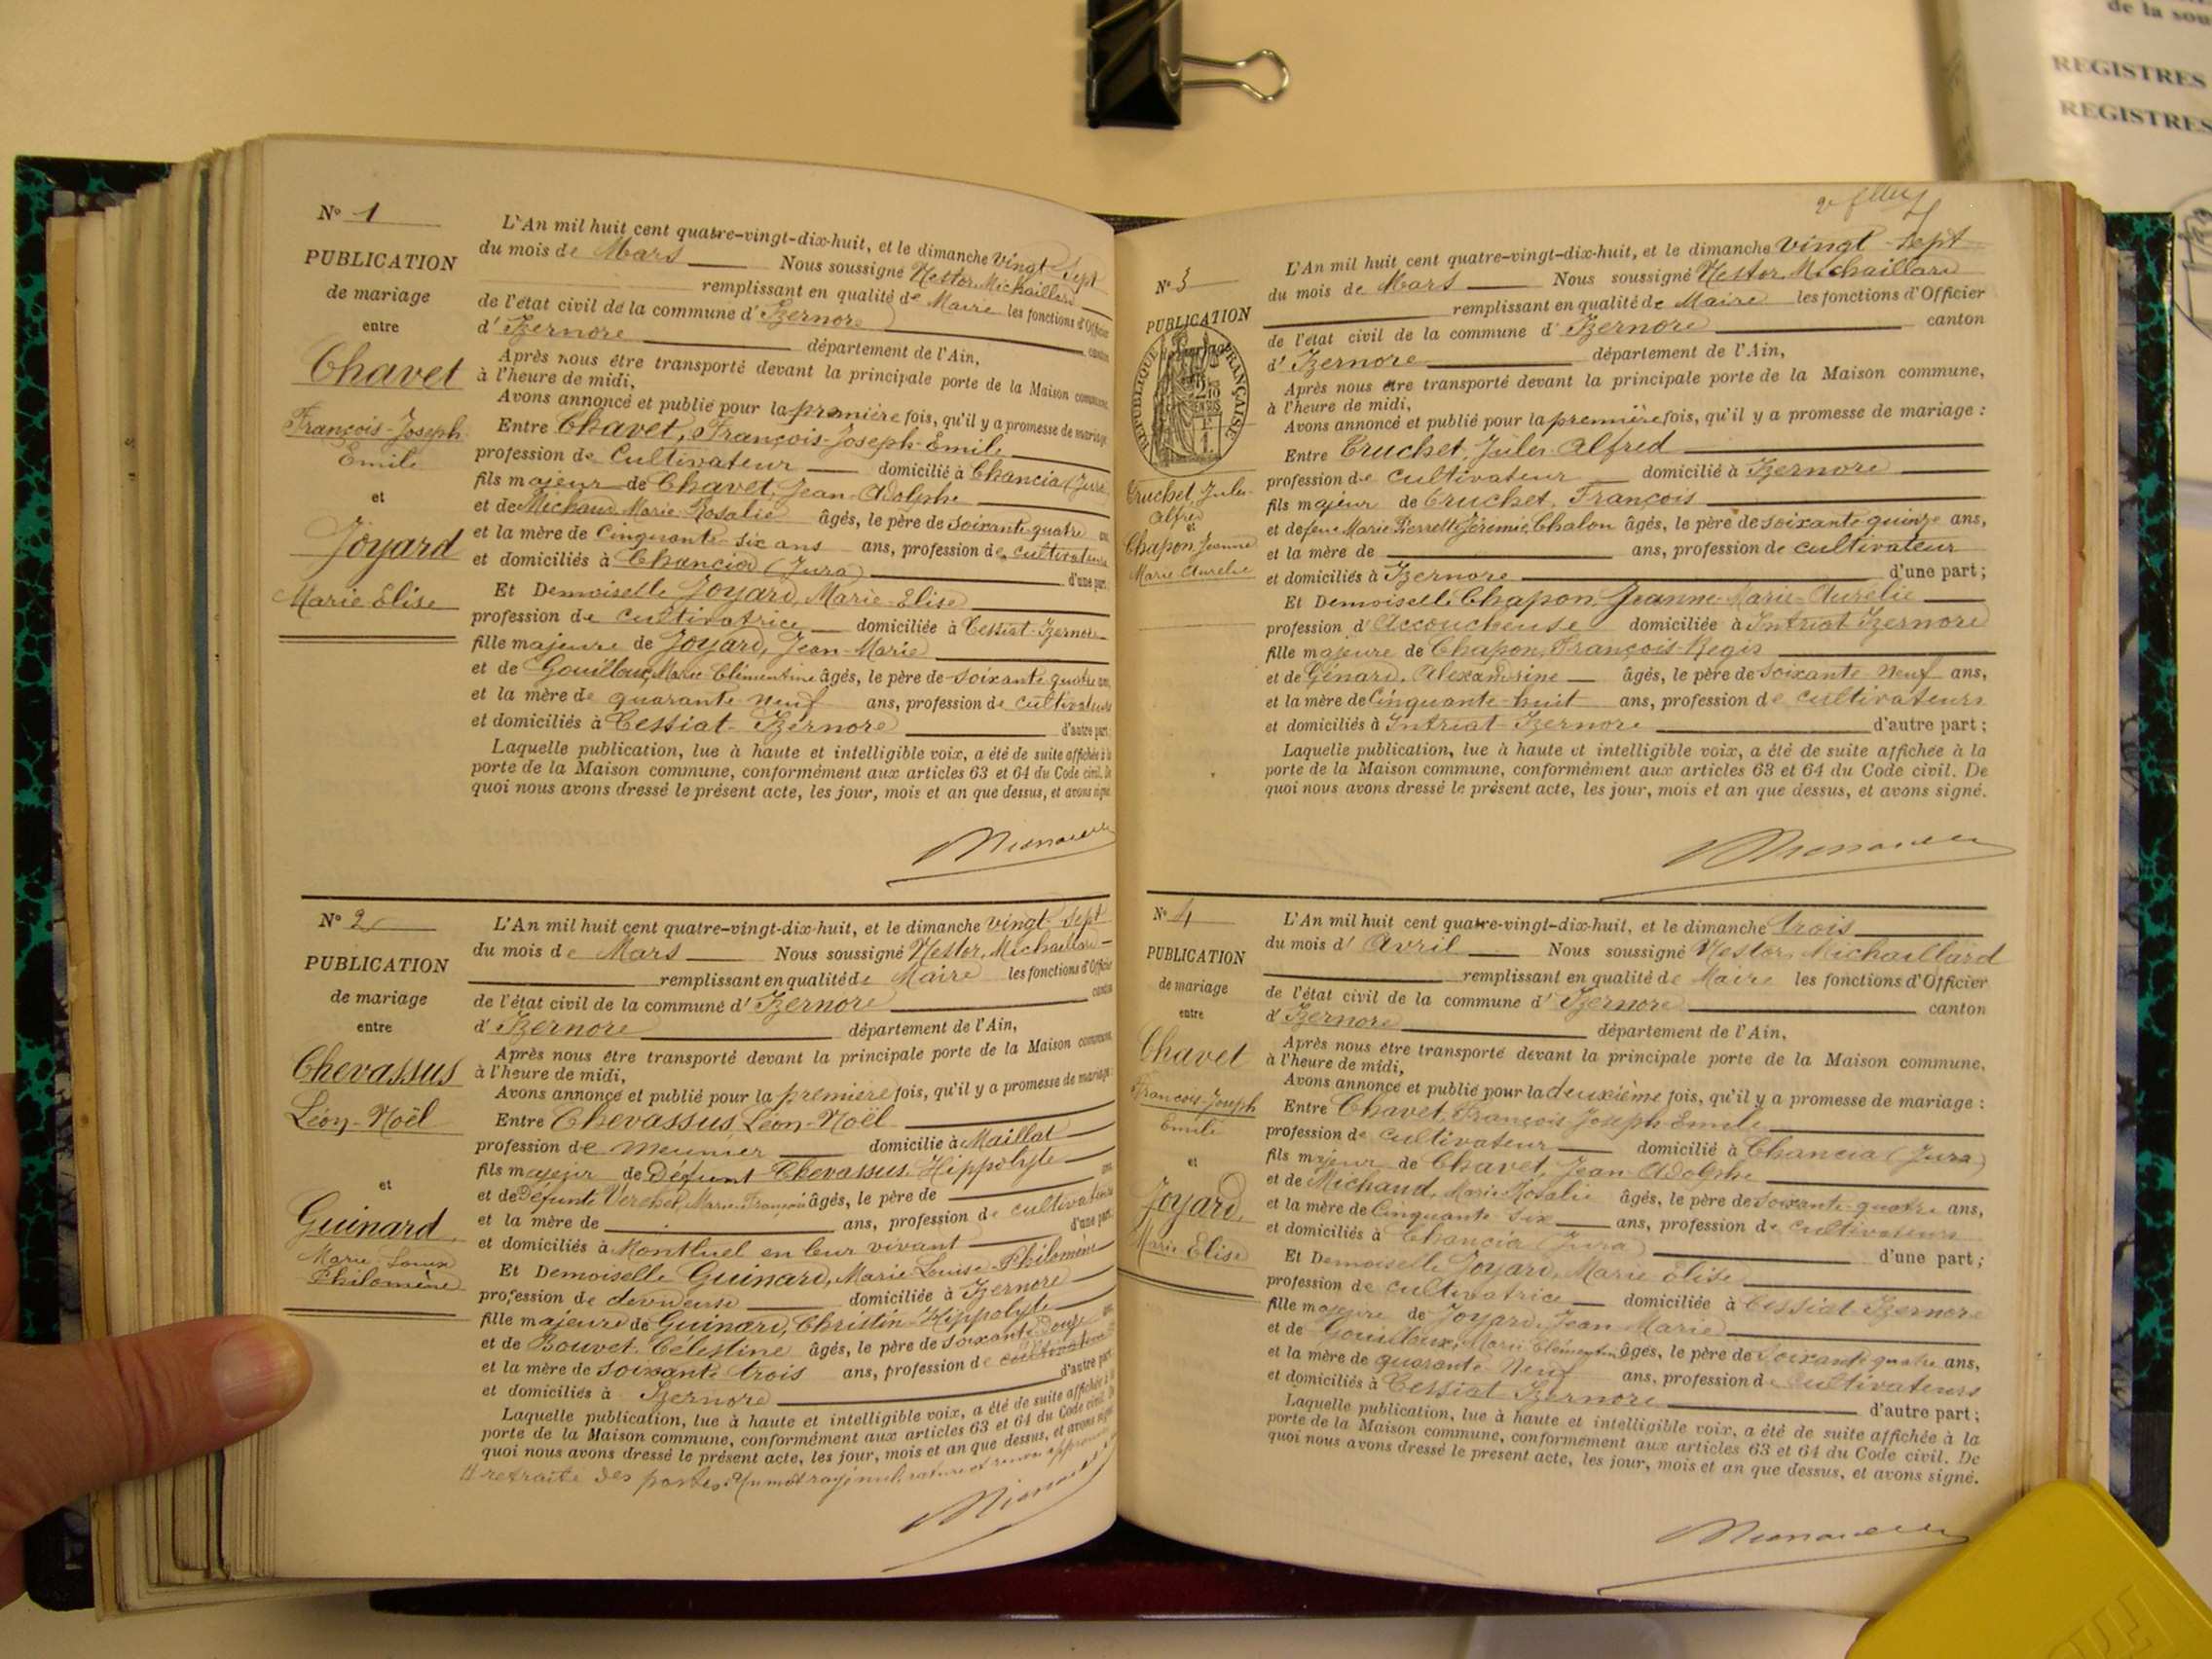 N° 1
PUBLICATION
de mariage
entre
Chavet
François-Joseph
Emile
et
Joyard
Marie Elise
L'An mil huit cent quatre-vingt-dix-huit, et le dimanche vingt sept
du mois de Mars Nous soussigné Nestor Michaillard
remplissant en qualité de Maire les fonctions d'Officier
de l'état civil de la commune d'Izernore canton
d'Izernore département de l'Ain,
Après nous être transporté devant la principale porte de la Maison commune,
à l'heure de midi,
Avons annoncé et publié pour la première fois, qu'il y a promesse de mariage
Entre Chavet, François-Joseph-Emile
profession de Cultivateur domicilié à Chancia (Jura
fils majeur de Chavet, Jean-Adolphe
et de Michaud Marie Rosalie âgés, le père de soixante-quatre ans
et la mère de Cinquante-six ans ans, profession de cultivateurs
et domiciliés à Chancia (Jura) d'une part
Et Demoiselle Joyard, Marie-Elise
profession de cultivatrice domiciliée à Cessiat-Izernore
fille majeure de Joyard, Jean-Marie
et de Gouilloux, Marie Clémentine âgés, le père de soixante quatre ans,
et la mère de quarante neuf ans, profession de cultivateurs
et domiciliés à Cessiat-Izernore d'autre part;
Laquelle publication, lue à haute et intelligible voix, a été de suite affichée à la
porte de la Maison commune, conformément aux articles 63 et 64 du Code civil. De
quoi nous avons dressé le présent acte, les jour, mois et an que dessus, et avons signé
N° 2
PUBLICATION
de mariage
entre
Chevassus
Léon-Noël
et
Guinard
Marie Louise
Philomène
L'An mil huit cent quatre-vingt-dix-huit, et le dimanche vingt sept
du mois de Mars Nous soussigné Nestor Michaillard
remplissant en qualité de Maire les fonctions d'Officier
de l'état civil de la commune d'Izernore canton
d'Izernore département de l'Ain,
Après nous être transporté devant la principale porte de la Maison commune,
à l'heure de midi,
Avons annoncé et publié pour la première fois, qu'il y a promesse de mariage:
Entre Chevassus, Léon-Noël
profession de meunier domicilié à Maillat
fils majeur de Défunt Chevassus Hippolyte
et de Défunte Verchet, Marie Françoise âgés, le père de ans,
et la mère de ans, profession de cultivateurs
et domiciliés à Montluel en leur vivant d'une part;
Et Demoiselle Guinard, Marie-Louise-Philomène
profession de devideuse domiciliée à Izernore
fille majeure de Guinard, Christin-Hippolyte
et de Bouvet Célestine âgés, le père de soixante douze ans,
et la mère de soixante trois ans, profession de cultivateur
et domiciliés à Izernore d'autre part
Laquelle publication, lue à haute et intelligible voix, a été de suite affichée à la
porte de la Maison commune, conformément aux articles 63 et 64 du Code civil. De
quoi nous avons dressé le présent acte, les jour, mois et an que dessus, et avons signé
retraité des postes. Un mot rayé nul, rature et renvoi approuvés
N° 3
PUBLICATION
de mariage
RÉPUBLIQUE FRANÇAISE
Truchet, Jules
Alfred
et
Chapon Jeanne
Marie Aurelie
L'An mil huit cent quatre-vingt-dix-huit, et le dimanche vingt-sept
du mois de Mars Nous soussigné Nestor Michaillard
remplissant en qualité de Maire les fonctions d'Officier
de l'état civil de la commune d'Izernore canton
d'Izernore département de l'Ain,
Après nous être transporté devant la principale porte de la Maison commune,
à l'heure de midi,
Avons annoncé et publié pour la première fois, qu'il y a promesse de mariage :
Entre Truchet, Jules Alfred
profession de cultivateur domicilié à Izernore
fils majeur de Truchet, François
et de feue Marie Pierrette Jérémie Chalon âgés, le père de soixante quinze ans,
et la mère de ans, profession de cultivateur
et domiciliés à Izernore d'une part;
Et Demoiselle Chapon, Jeanne-Marie-Aurélie
profession d'Accoucheuse domiciliée à Intriat Izernore
fille majeure de Chapon, François-Regis
et de Génard, Alexandrine âgés, le père de soixante-neuf ans,
et la mère de Cinquante-huit ans, profession de cultivateurs
et domiciliés à Intriat-Izernore d'autre part;
Laquelle publication, lue à haute et intelligible voix, a été de suite affichée à la
porte de la Maison commune, conformément aux articles 63 et 64 du Code civil. De
quoi nous avons dressé le présent acte, les jour, mois et an que dessus, et avons signé.
N° 4
PUBLICATION
de mariage
entre
Chavet
François-Joseph
Emile
et
Joyard,
Marie Elise
L'An mil huit cent quatre-vingt-dix-huit, et le dimanche trois
du mois d'Avril Nous soussigné Nestor Michaillard
remplissant en qualité de Maire les fonctions d'Officier
de l'état civil de la commune d'Izernore canton
d'Izernore département de l'Ain,
Après nous être transporté devant la principale porte de la Maison commune,
à l'heure de midi,
Avons annoncé et publié pour la deuxième fois, qu'il y a promesse de mariage :
Entre Chavet, François Joseph Emile
profession de cultivateur domicilié à Chancia (Jura)
fils majeur de Chavet, Jean Adolphe
et de Michaud, Marie Rosalie âgés, le père de soixante-quatre ans,
et la mère de Cinquante-six ans, profession de cultivateurs
et domiciliés à Chancia (Jura) d'une part;
Et Demoiselle Joyard, Marie Elise
profession de cultivatrice domiciliée à Cessiat-Izernore
fille majeure de Joyard, Jean Marie
et de Gouilloux, Marie Clémentine âgés, le père de Soixante quatre ans,
et la mère de quarante-neuf ans, profession de cultivateurs
et domiciliés à Cessiat Izernore d'autre part;
Laquelle publication, lue à haute et intelligible voix, a été de suite affichée à la
porte de la Maison commune, conformément aux articles 63 et 64 du Code civil. De
quoi nous avons dressé le présent acte, les jour, mois et an que dessus, et avons signé.
de la sou
REGISTRES
REGISTRES